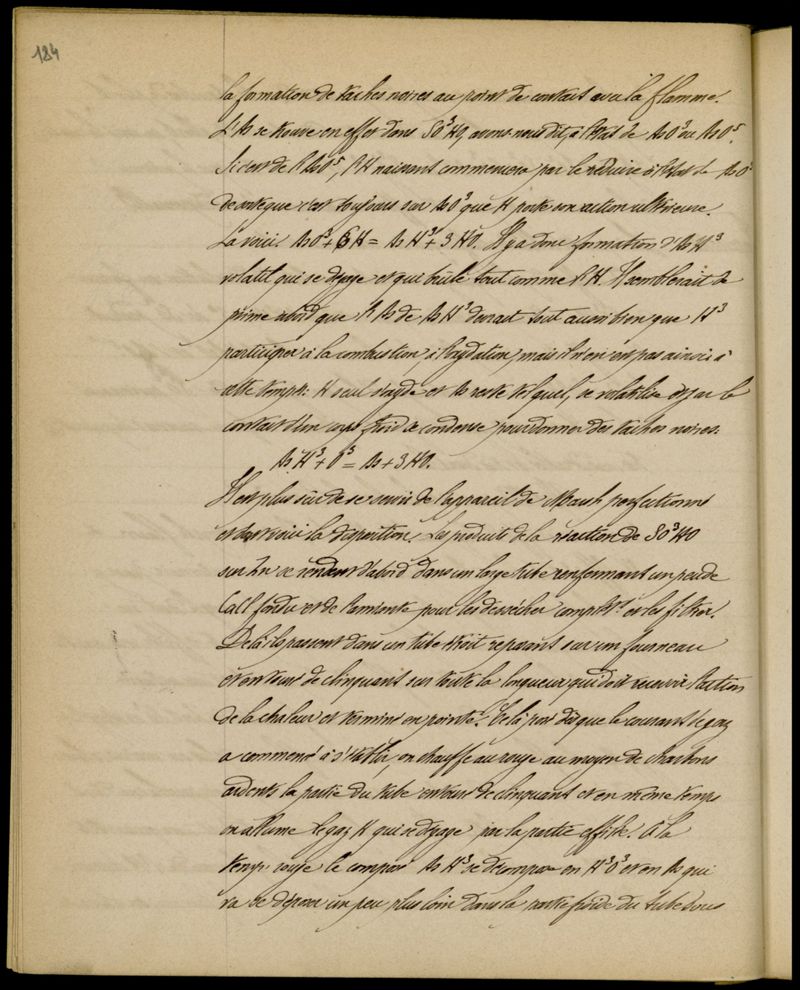 184
la formation de taches noires au point de contact avec la flamme.
L'As se trouve en effet dans SO³HO, avons nous dit, à l'état de AsO³ ou AsO⁵.
Si c'est de l'AsO⁵, l'H naissant commencera par le réduire à l'état de AsO³
de sorte que c'est toujours sur AsO³ que H porte son action ultérieure.
La voici. AsO³ + 6H = AsH³ + 3HO. Il y a donc formation d'AsH³
volatil qui se dégage et qui brûle tout comme l'H. Il semblerait de
prime abord que l'As de AsH³ devrait tout aussi bien que H³
participer à la combustion, à l'oxydation, mais il n'en est pas ainsi à
cette temp^re: H seul s'oxyde et As reste tel quel, se volatilise et par le
contact d'un corps froid se condense pour donner des taches noires.
AsH³ + O³ = As + 3HO.
Il est plus sûr de se servir de l'appareil de Marsh perfectionné
et dont voici la disposition. Les produits de la réaction de SO³HO
sur Zn se rendent d'abord dans un large tube renfermant un peu de
CaCl fondu et de l'amiante pour les dessécher compl^t. et les filtrer.
De là ils passent dans un tube étroit reposant sur un fourneau
et entouré de clinquant sur toute la longueur qui doit recevoir l'action
de la chaleur et terminé en pointe. Cela posé dès que le courant de gaz
a commencé à s'établir, on chauffe au rouge au moyen de charbons
ardents la partie du tube entouré de clinquant et en même temps
on allume le gaz H qui se dégage par la partie effilée. A la
temp. rouge le composé AsH³ se décompose en H³O³ et en As qui
va se déposer un peu plus loin dans la partie froide du tube sous